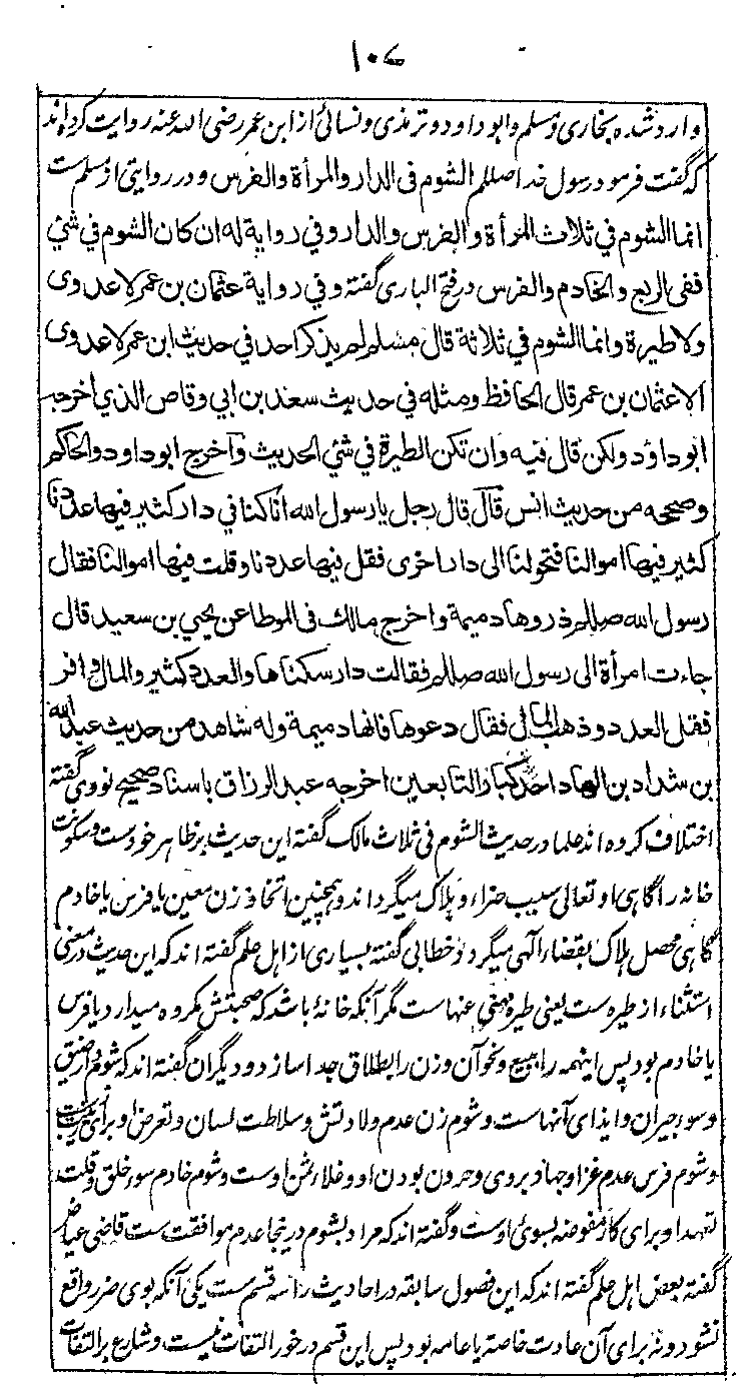 ۱۰۷
وارد شده بخاری و مسلم و ابو داود و ترمذی و نسائی از ابن عمر رضی الله عنه روایت کرده‌اند
که گفت فرمود رسول خدا صللم الشوم فی الدار والمرأة والفرس و در روایتی از مسلم ست
انما الشوم فی ثلاث المرأة والفرس والدار وفی روایة له ان کان الشوم فی شئ
ففی الربع والخادم والفرس در فتح الباری گفته وفی روایة عثمان بن عمر لا عدوی
ولا طیرة وانما الشوم فی ثلاثة قال مسلم لم یذکر احد فی حدیث ابن عمر لا عدوی
الا عثمان بن عمر قال الحافظ ومثله فی حدیث سعد بن ابی وقاص الذی اخرجه
ابو داؤد ولکن قال فیه وان تکن الطیرة فی شئ الحدیث وآخرج ابو داود والحاکم
وصححه من حدیث انس قال قال رجل یا رسول الله انا کنا فی دار کثیر فیها عددنا
کثیر فیها اموالنا فتحولنا الی دار اخری فقل فیها عددنا وقلت فیها اموالنا فقال
رسول الله صللم ذروها دمیمة واخرج مالک فی الموطا عن یحیی بن سعید قال
جاءت امرأة الی رسول الله صللم فقالت دار سکناها والعدد کثیر والمال وافر
فقل العدد وذهب المال فقال دعوها فانها دمیمة وله شاهد من حدیث عبد الله
بن شداد بن الهاد احد کبار التابعین اخرجه عبد الرزاق باسناد صحیح نووی گفته
اختلاف کرده اند علما در حدیث الشوم فی ثلاث مالک گفته این حدیث بر ظاهر خودست و سکونت
خانه را گاهی او تعالی سبب ضرا و هلاک میگرداند و همچنین اتخاذ زن معین یا فرس یا خادم
گاهی محصل هلاک بقضاء الهی میگردد و خطابی گفته بسیاری از اهل علم گفته اند که این حدیث در معنی
استثناء از طیره ست یعنی طیره منهی عنهاست مگر آنکه خانهٔ باشد که صحبتش مکروه میدارد یا فرس
یا خادم بود پس اینهمه را ببیع و نحو آن و زن را بطلاق جدا سازد و دیگران گفته اند که شوم دار ضیق
و سوء جیران و ایذای آنهاست و شوم زن عدم ولادتش و سلاطت لسان و تعرض او برای
و شوم فرس عدم غزا و جهاد بروی و حرون بودن او و غلاء ثمن اوست و شوم خادم سوء خلق و قلت
تعهد او برای کار مفوضه بسوی اوست و گفته اند که مراد بشوم درینجا عدم موافقت ست قاضی عیاض
گفته بعض اهل علم گفته اند که این فصول سابقه در احادیث را سه قسم ست یکی آنکه بوی ضرر واقع
نشود و نه برای آن عادت خاصه یا عامه بود پس این قسم در خور التفات نیست و شارع بر التفات